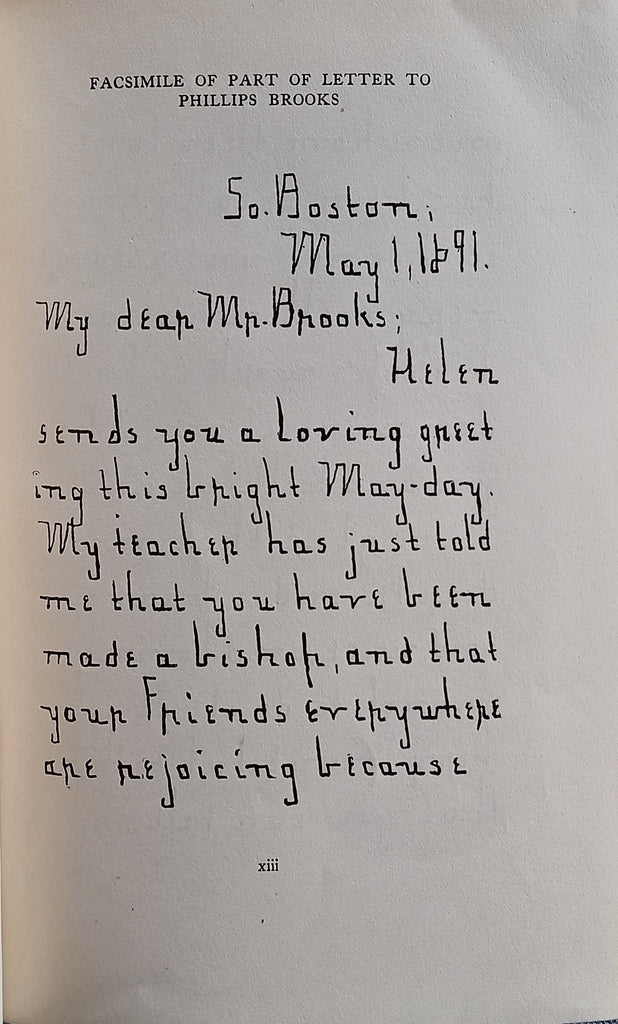 FACSIMILE OF PART OF LETTER TO
PHILLIPS BROOKS
So. Boston,
May 1, 1891.
My dear Mr. Brooks;
Helen
sends you a loving greet
ing this bright May-day.
My teacher has just told
me that you have been
made a bishop, and that
your friends everywhere
are rejoicing because
xiii